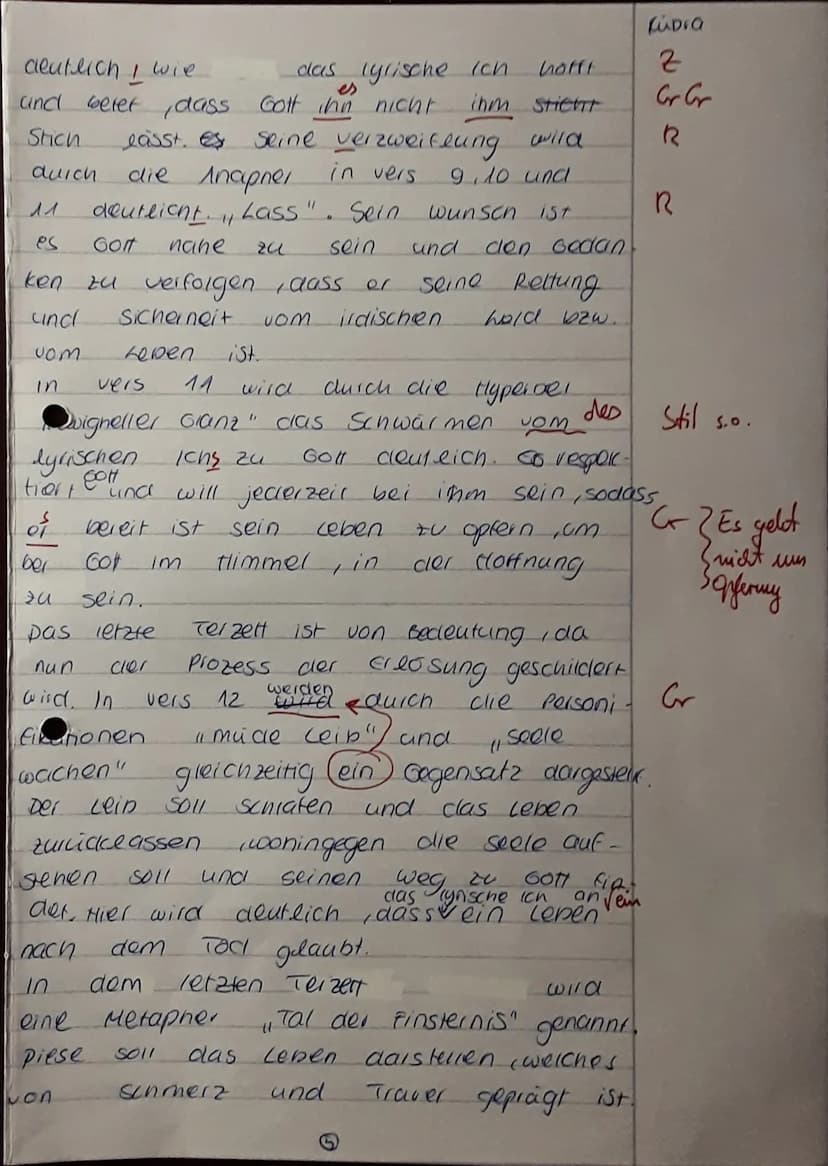 Kübra
deutlich, wie das lyrische Ich hofft
Z
und betet, dass Gott ihn es nicht ihm sticht
Gr Gr
Stich lässt. es seine verzweiflung wird
R
durch die Anapher in vers 9, 10 und
11 deutlicht. „Lass". Sein wunsch ist
R
es Gott nahe zu sein und den Gedan
ken zu verfolgen, dass er seine Rettung
und Sicherheit vom irdischen bzw.
vom Leben ist.
in vers 11 wird durch die Hyperbel
„ewigheller Glanz" das Schwärmen vom des
Stil s.o.
lyrischen Ichs zu Gott deutlich. Es respek-
tiert Gott und will jederzeit bei ihm sein, sodass
es bereit ist sein Leben zu opfern, um
Gr Es geht
bei Gott im Himmel, in der Hoffnung
nicht um
zu sein.
Opferung
Das letzte Terzett ist von Bedeutung, da
nun der Prozess der Erlösung geschildert
wird. In vers 12 wird werden durch die Personi-
Gr
fikationen „müde Leib" und „Seele
wachen" gleichzeitig ein Gegensatz dargestellt.
Der Leib soll schlafen und das Leben
zurücklassen, wohingegen die Seele auf-
stehen soll und seinen weg zu Gott fin-
det. Hier wird deutlich, dass das lyrische Ich an ein ein Leben
nach dem Tod glaubt.
In dem letzten Terzett wird
eine Metapher „Tal der Finsternis" genannt.
Diese soll das Leben darstellen, welches
von Schmerz und Trauer geprägt ist.
5